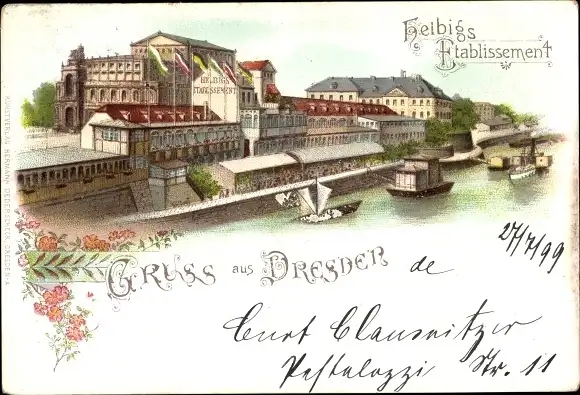 Helbigs
Etablissement
HELBIG'S
ETABLISSEMENT
27/7/99
Gruss aus Dresden de
Curt Clausnitzer
Pestalozzi Str. 11